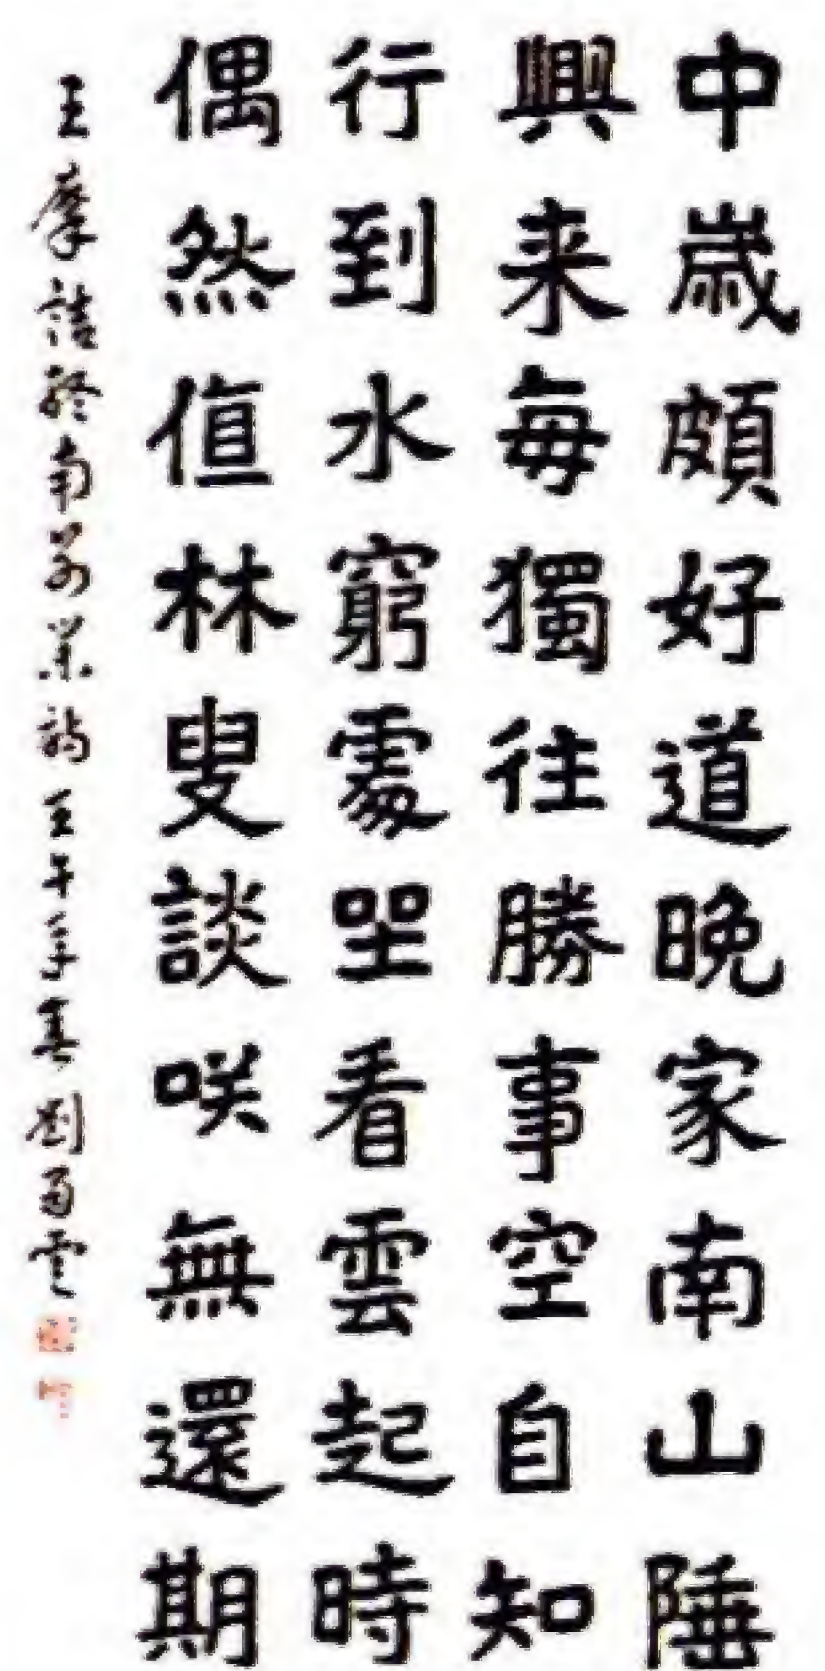 中歳頗好道晚家南山陲
興来每獨往勝事空自知
行到水窮處坐看雲起時
偶然值林叟談咲無還期
王摩詰終南別業詩壬午年春劉